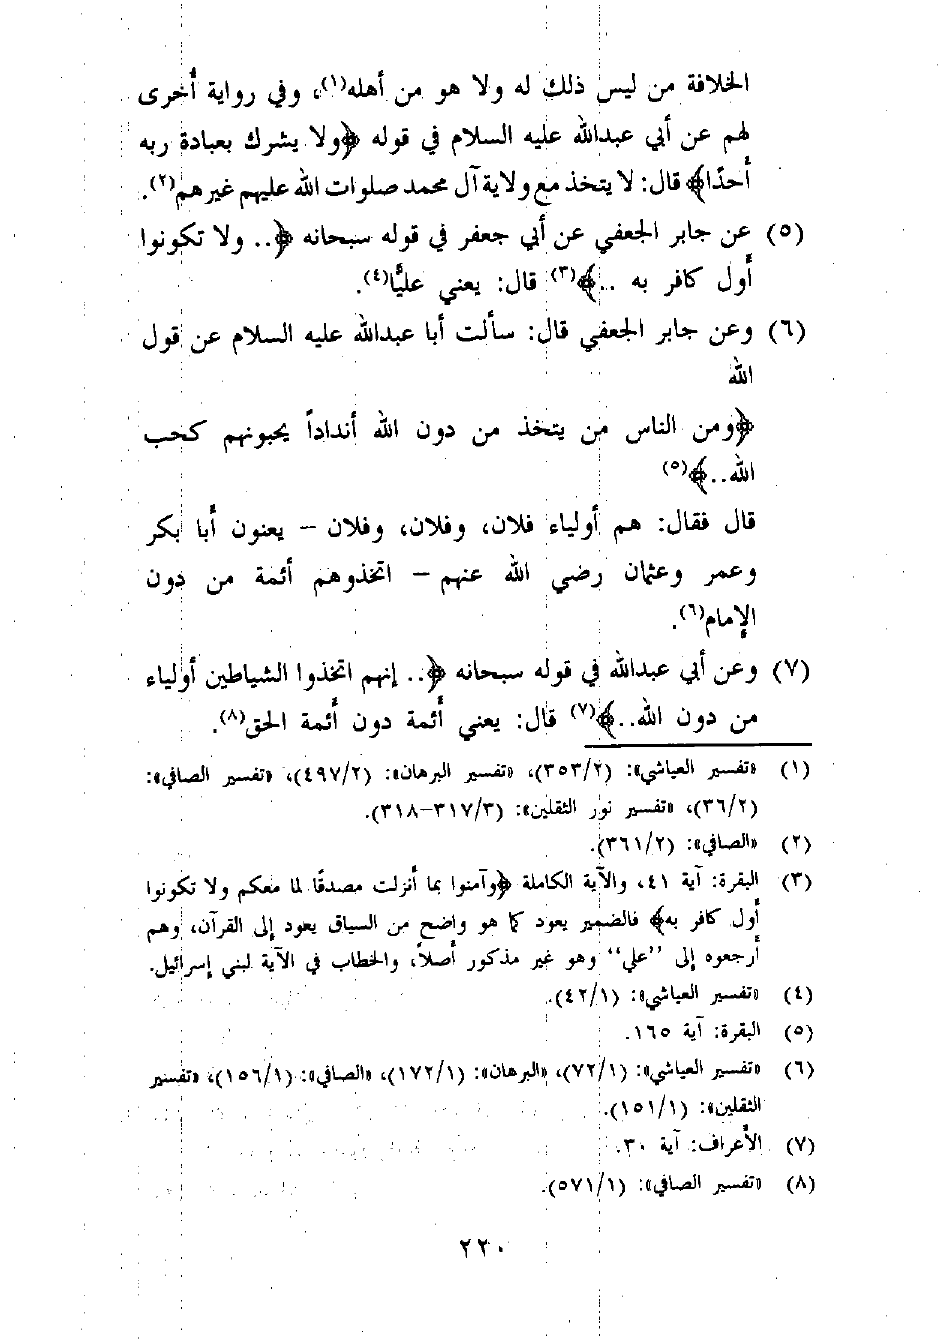 الخلافة من ليس ذلك له ولا هو من أهله(١)، وفي رواية أُخرى
لهم عن أبي عبدالله عليه السلام في قوله ﴿ولا يشرك بعبادة ربه
أحدًا﴾ قال: لا يتخذ مع ولاية آل محمد صلوات الله عليهم غيرهم(٢).
(٥) عن جابر الجعفي عن أبي جعفر في قوله سبحانه ﴿.. ولا تكونوا
أول كافر به ..﴾(٣) قال: يعني عليًّا(٤).
(٦) وعن جابر الجعفي قال: سألت أبا عبدالله عليه السلام عن قول
الله
﴿ومن الناس من يتخذ من دون الله أنداداً يحبونهم كحب
الله..﴾(٥)
قال فقال: هم أولياء فلان، وفلان، وفلان – يعنون أبا بكر
وعمر وعثمان رضي الله عنهم – اتخذوهم أئمة من دون
الإمام(٦).
(٧) وعن أبي عبدالله في قوله سبحانه ﴿.. إنهم اتخذوا الشياطين أولياء
من دون الله..﴾(٧) قال: يعني أئمة دون أئمة الحق(٨).
(١) «تفسير العياشي»: (٣٥٣/٢)، «تفسير البرهان»: (٤٩٧/٢)، «تفسير الصافي»:
(٣٦/٢)، «تفسير نور الثقلين»: (٣١٧/٣–٣١٨).
(٢) «الصافي»: (٣٦١/٢).
(٣) البقرة: آية ٤١، والآية الكاملة ﴿وآمنوا بما أنزلت مصدقًا لما معكم ولا تكونوا
أول كافر به﴾ فالضمير يعود كما هو واضح من السياق يعود إلى القرآن، وهم
أرجعوه إلى “علي” وهو غير مذكور أصلاً، والخطاب في الآية لبني إسرائيل.
(٤) «تفسير العياشي»: (٤٢/١).
(٥) البقرة: آية ١٦٥.
(٦) «تفسير العياشي»: (٧٢/١)، «البرهان»: (١٧٢/١)، «الصافي»: (١٥٦/١)، «تفسير
الثقلين»: (١٥١/١).
(٧) الأعراف: آية ٣٠.
(٨) «تفسير الصافي»: (٥٧١/١).
٢٢٠